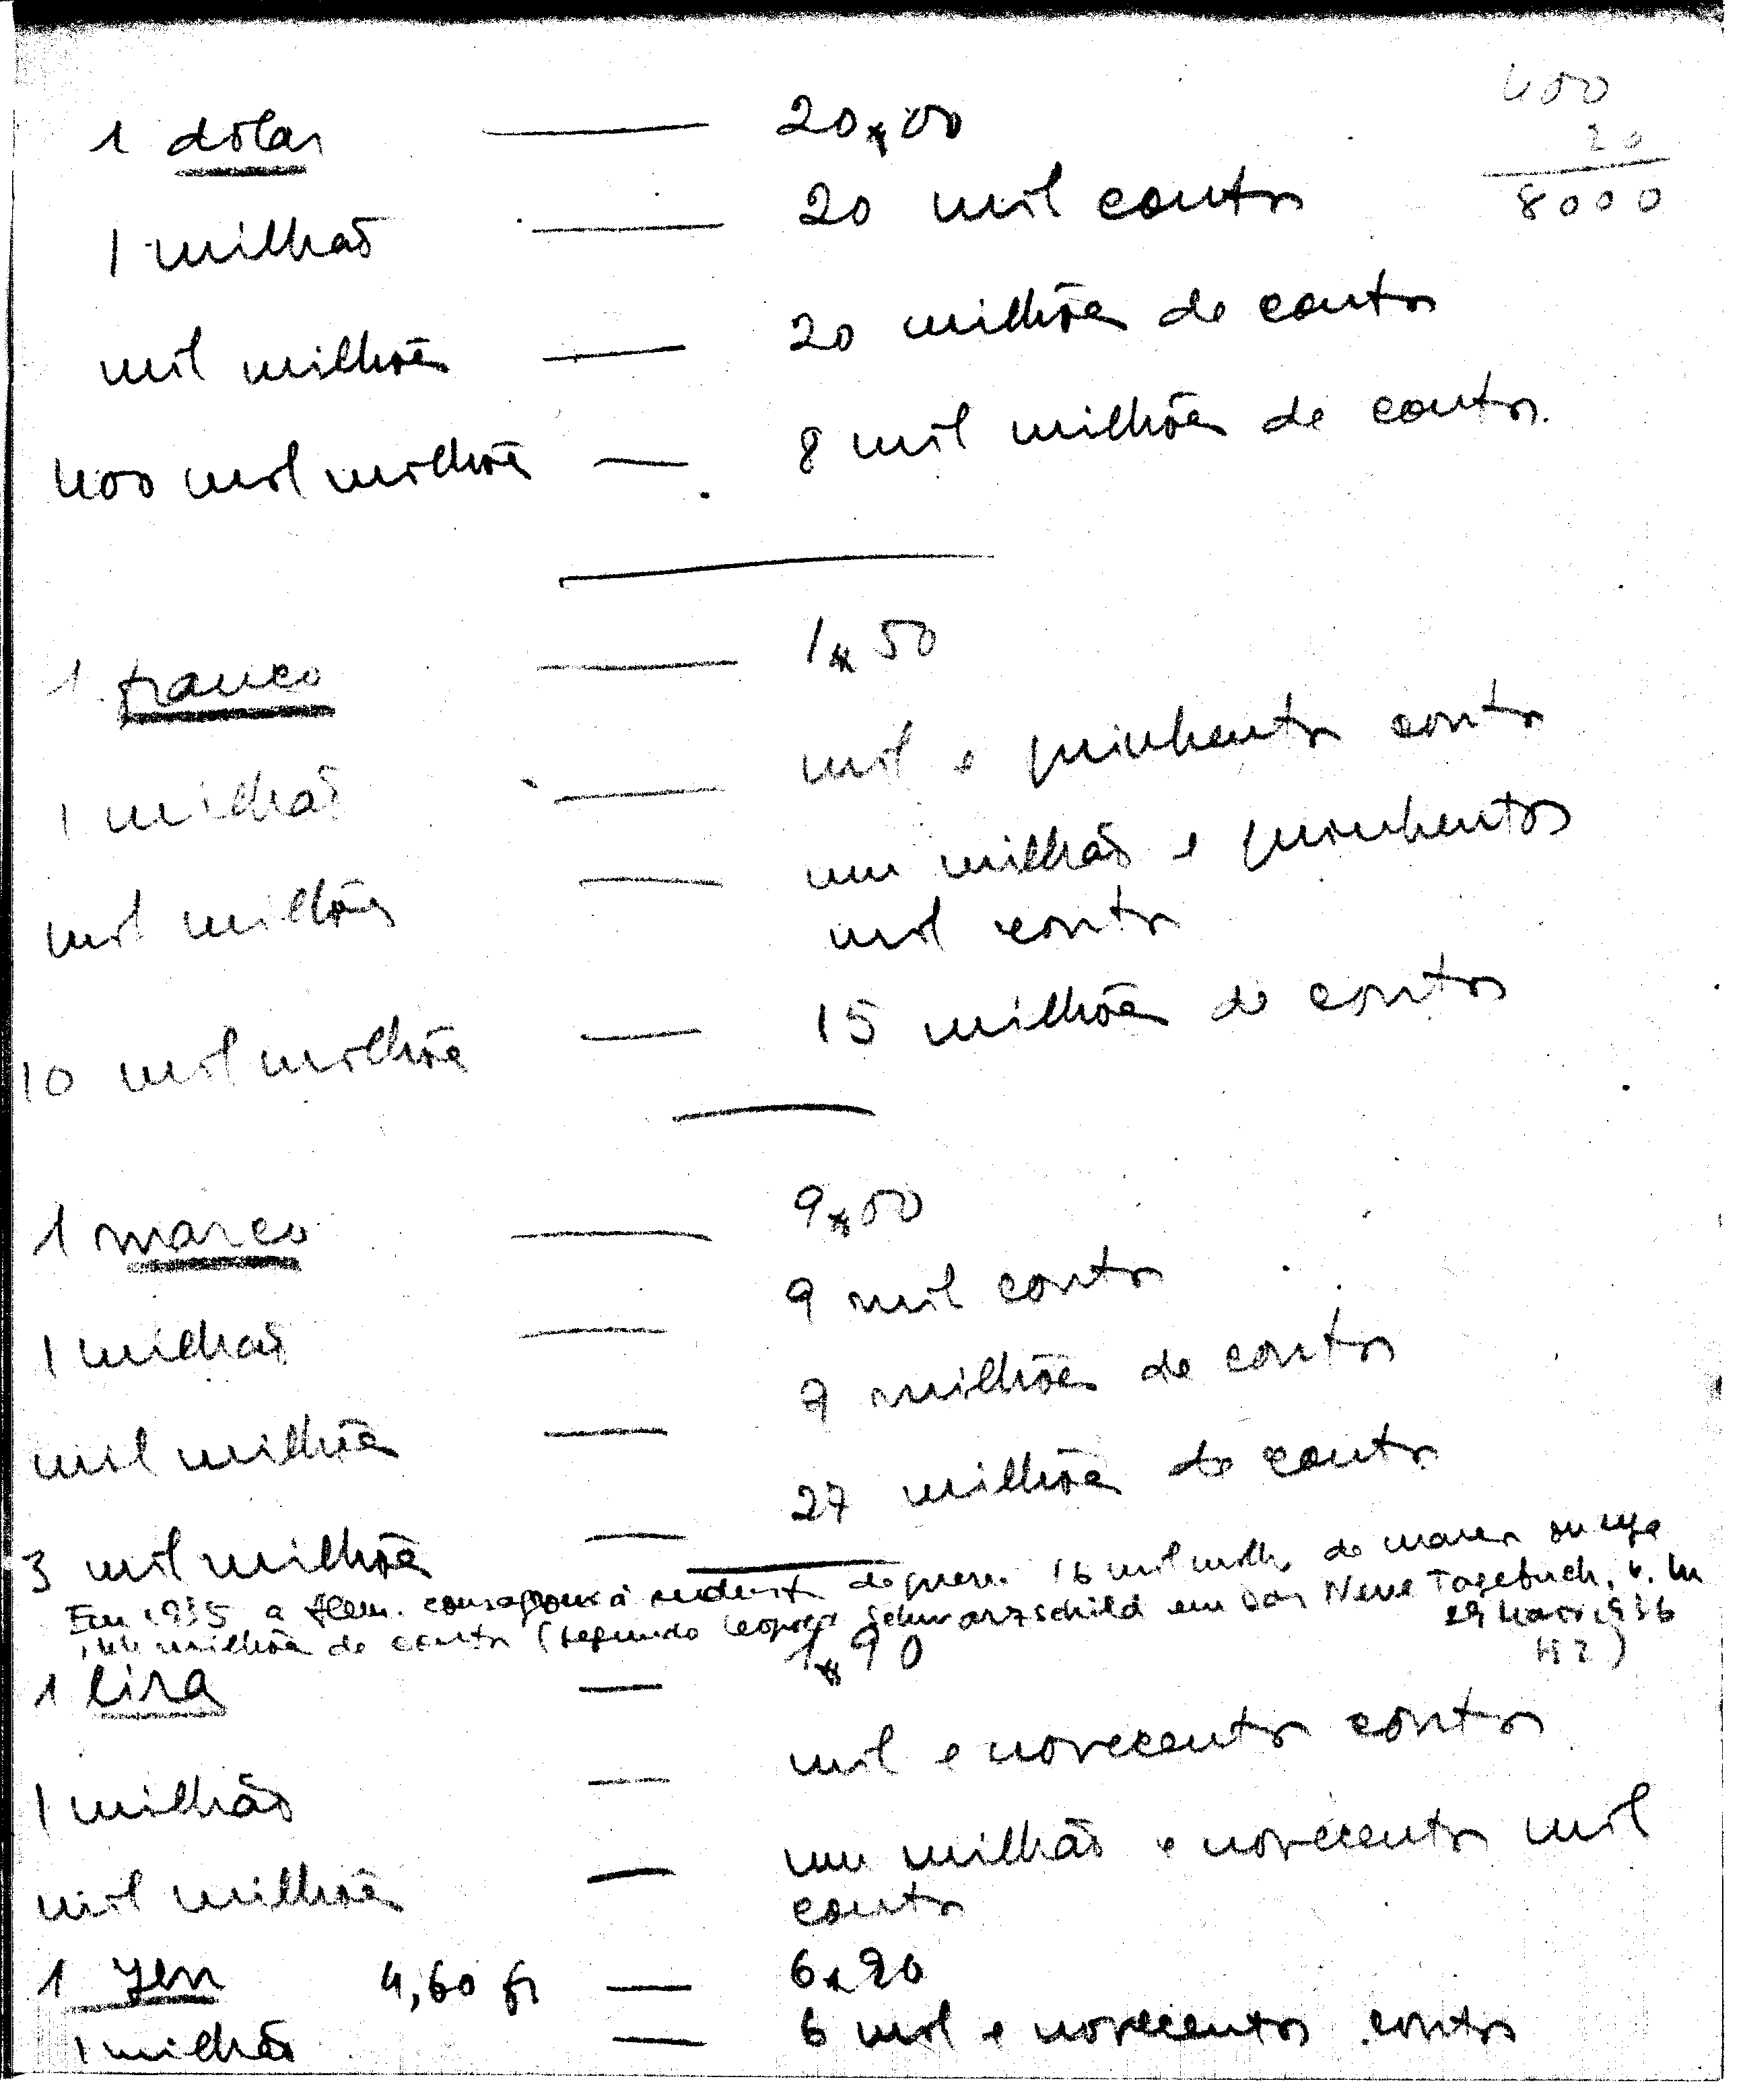 1 dólar — 20$00
400
20
8000
1 milhão — 20 mil contos
mil milhões — 20 milhões de contos
400 mil milhões — 8 mil milhões de contos.
1 franco — 1$50
1 milhão — mil e quinhentos contos
mil milhões — um milhão e quinhentos
mil contos
10 mil milhões — 15 milhões de contos
1 marco — 9$00
1 milhão — 9 mil contos
mil milhões — 9 milhões de contos
3 mil milhões — 27 milhões de contos
Em 1935 a Alem. consagrou à de guerra 16 mil milh. de marcos ou seja
144 milhões de contos (segundo Leopold Schwarzschild em Das Neue Tagebuch,
1936
1 lira — 1$90
1 milhão — mil e novecentos contos
mil milhões — um milhão e novecentos mil
contos
1 yen 4,60 fr — 6$90
1 milhão — 6 mil e novecentos contos